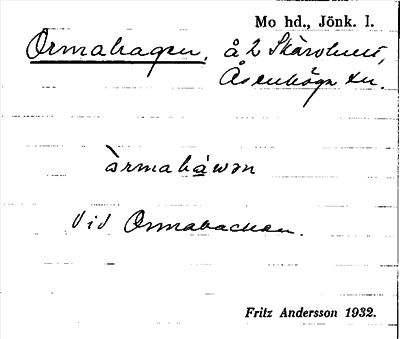 Mo hd., Jönk. l.
Ormahagen, å 2 Skärvhult,
Åsenhöga sn.
òrmahàwən
Vid Ormabacken.
Fritz Andersson 1932.